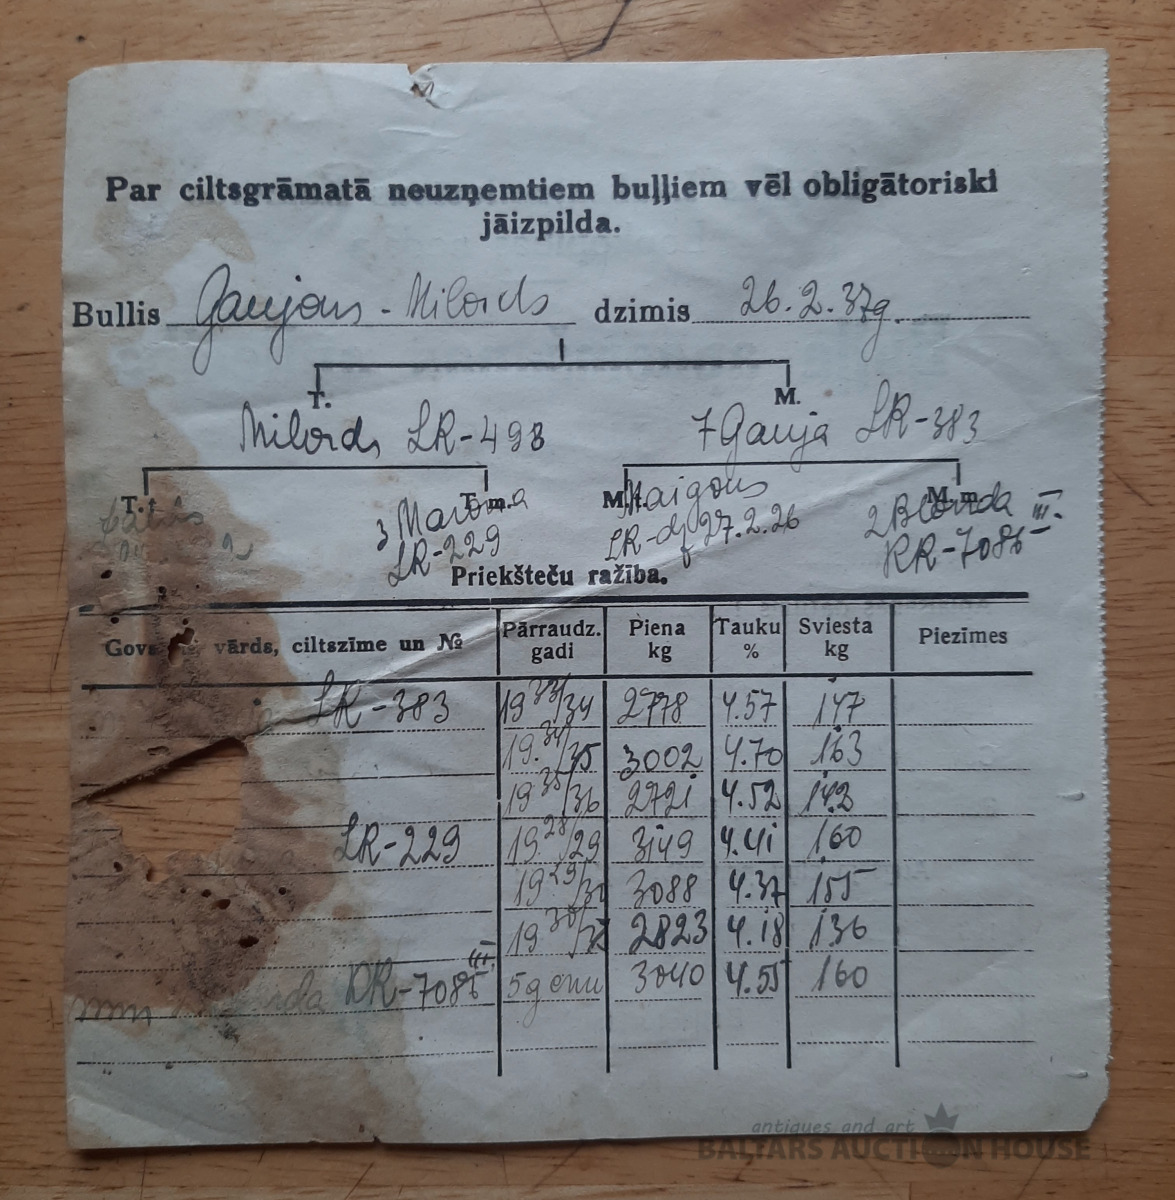 Par ciltsgrāmatā neuzņemtiem buļļiem vēl obligātoriski
jāizpilda.
Bullis Gaujons - Milords dzimis 26.2.37g.
T. M.
Milords LR-498 7 Gauja LR-383
T. t. T. m. M. t. M. m.
3 Maiona Maigons 2 Blonda III.
LR-229 LR- 27.2.26 RR-7085
Priekšteču ražība.
vārds, ciltszīme un № Pārraudz. gadi Piena kg Tauku % Sviesta kg Piezīmes
LR-383 1933/34 2778 4.57 147
19.34/35 3002 4.70 163
1935/36 2721 4.52 142
LR-229 19.28/29 3149 4.41 160
1929/30 3088 4.37 155
1930/31 2823 4.18 136
RR-7085 III. 5 g 3040 4.55 160
antiques and art
BALTARS AUCTION HOUSE